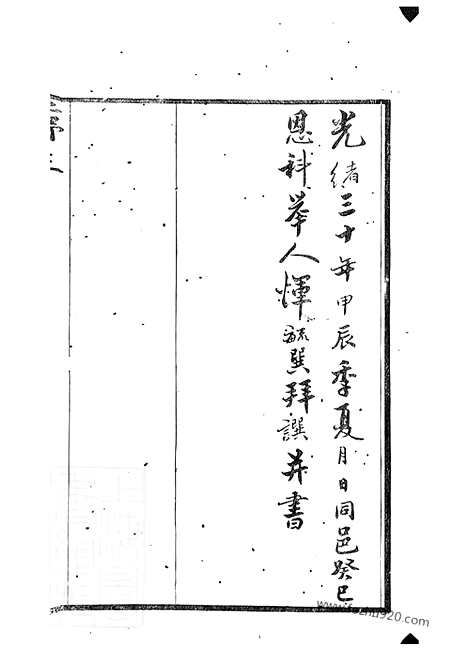 光緒三十年甲辰季夏月日同邑癸巳
恩科舉人惲毓巽拜譔并書